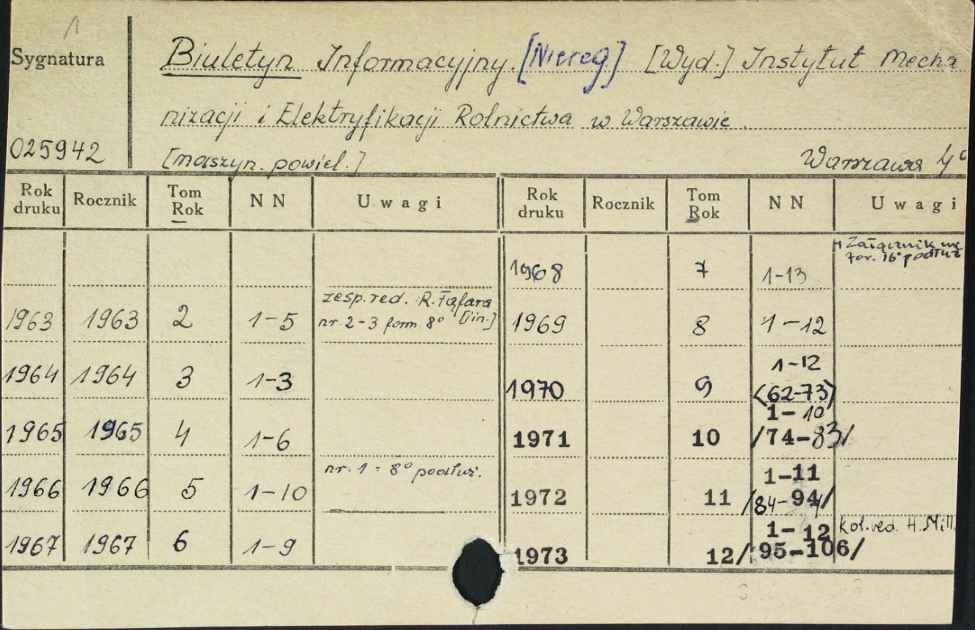 1
Sygnatura
Biuletyn Informacyjny. [Niereg] [Wyd.] Instytut Mecha
nizacji i Elektryfikacji Rolnictwa w Warszawie.
025942
[maszyn. powiel.] Warszawa 4°
Rok druku Rocznik Tom Rok NN Uwagi Rok druku Rocznik Tom Rok NN Uwagi
1968 7 1-13 Załącznik
for. 16° podłuż
1963 1963 2 1-5 zesp. red. R. Fafara [in.]
nr 2-3 form 8° 1969 8 1-12
1964 1964 3 1-3 1970 9 1-12
(62-73)
1965 1965 4 1-6 1971 10 1-10
/74-83/
1966 1966 5 1-10 nr. 1 = 8° podłuż. 1972 11 1-11
/84-94/
1967 1967 6 1-9 1973 12 1-12 kol. red. H. Mill
/95-106/